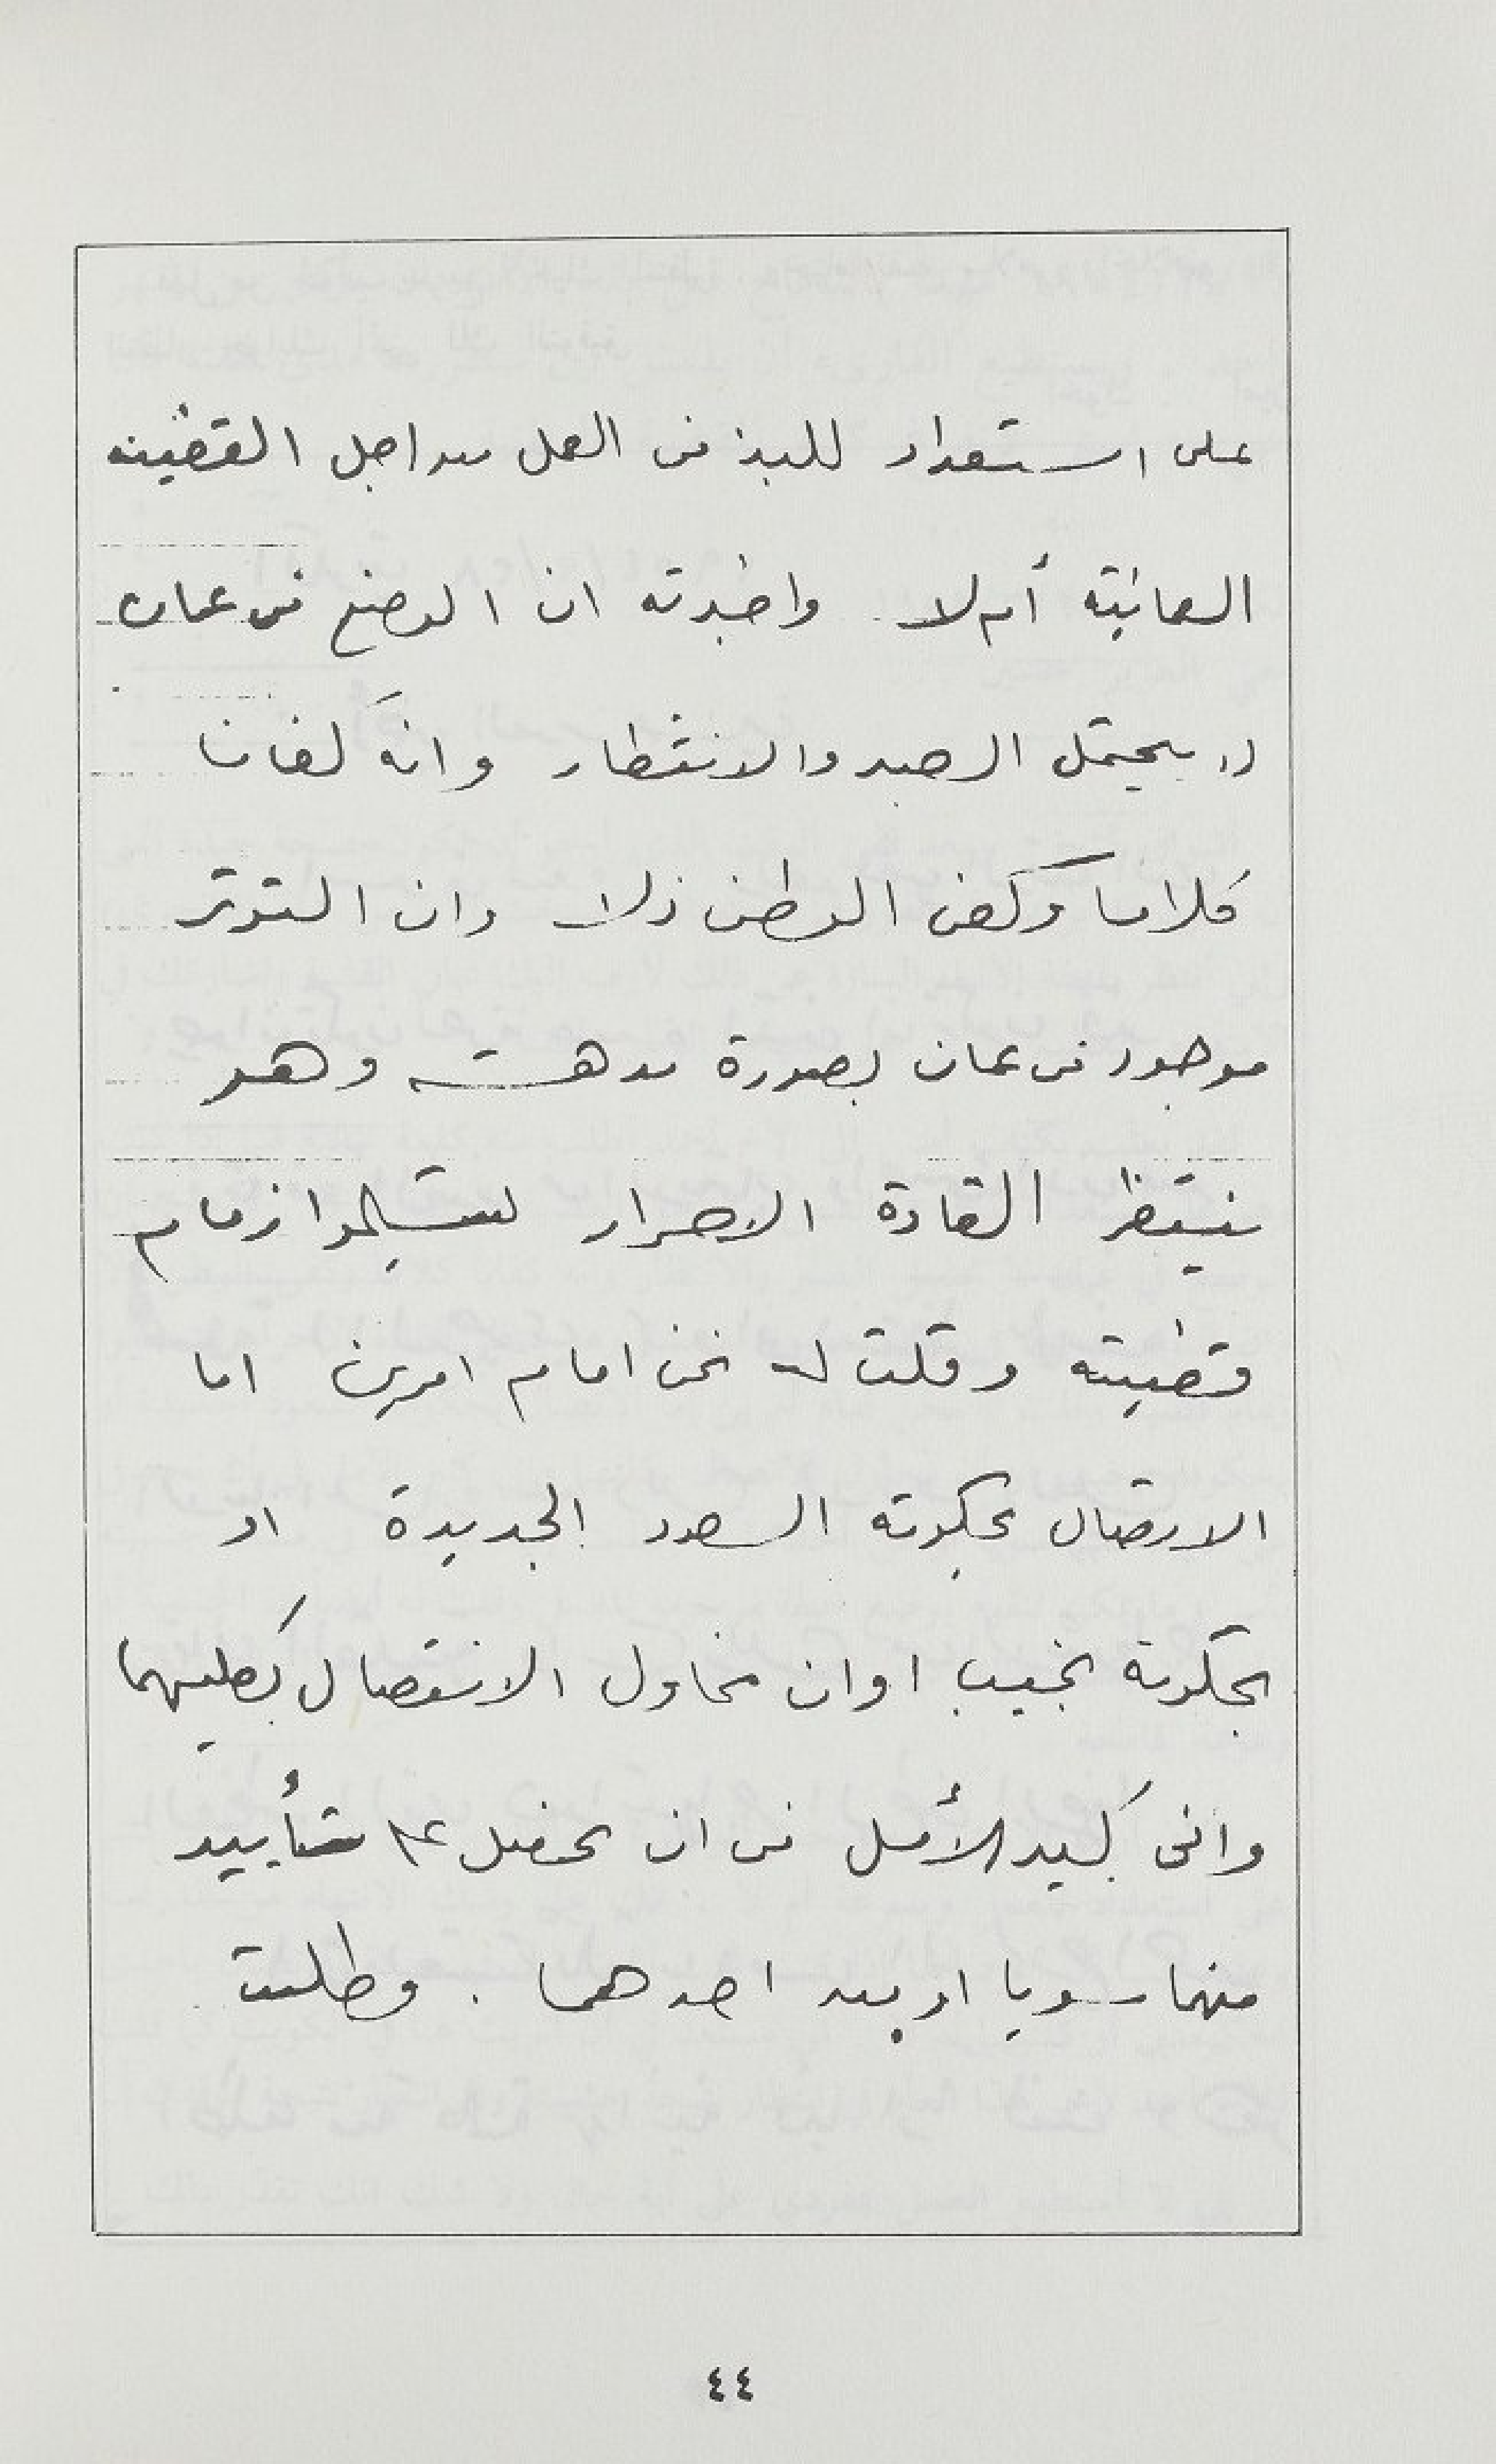 على استعداد للبذ فى العمل من اجل القضية
العمانية أم لا . واخبرته ان الوضع فى عمان
لا يحتمل الصبر والانتظار وانه كفانا
كلاما وكفى الوطن ذلا وان التوتر
موجود فى عمان بصورة مدهشه وهو
ينتظر القادة الاحرار ليستلموا زمام
قضيته وقلت له نحن امام امرين اما
الاتصال بحكومة السعود الجديدة او
بحكومة نجيب او ان نحاول الاتصال بكليهما
وانى كبير الأمل فى ان نحصل على تأييد
منهما سويا او من احدهما . وطلبت
٤٤